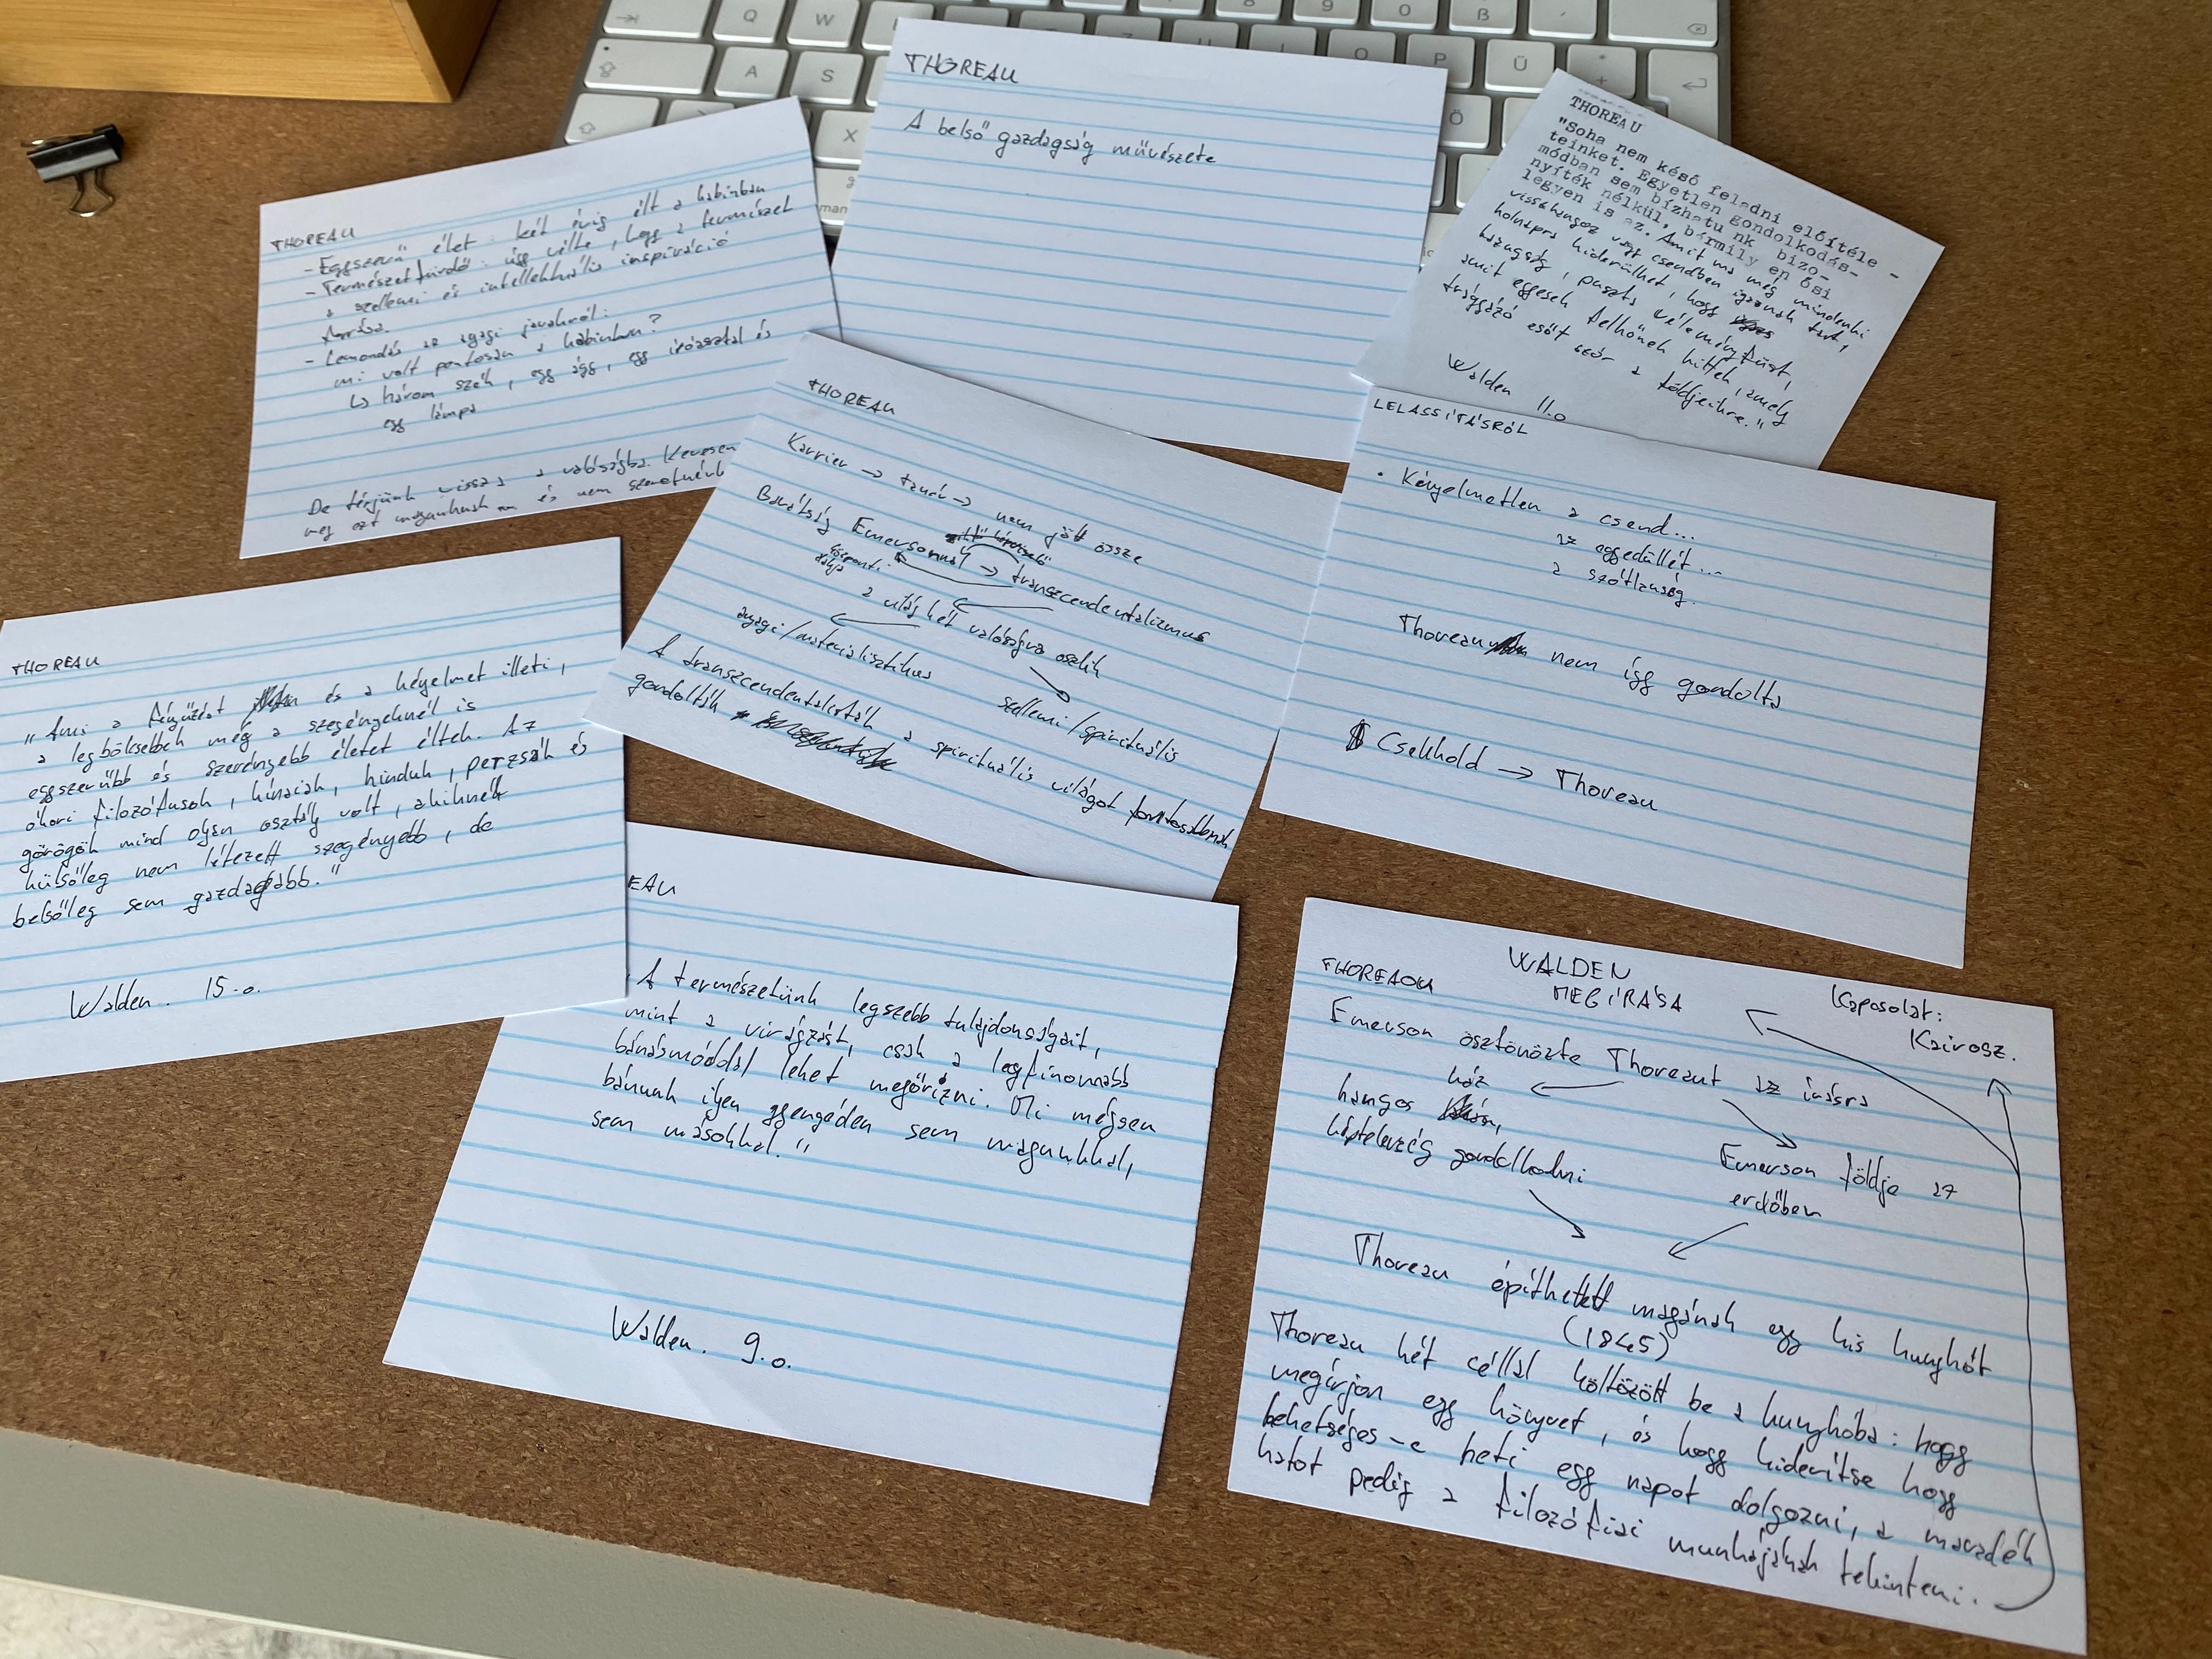 THOREAU
A belső gazdagság művészete
THOREAU
- Egyszerű élet: két évig élt a kabinban
- Természetfürdő: úgy vélte, hogy a természet
a szellemi és intellektuális inspiráció
forrása
- Lemondás az anyagi javakról:
mi volt pontosan a kabinban?
↳ három szék, egy ágy, egy íróasztal és
egy lámpa
De térjünk vissza a valóságba. Kevesen
meg ezt magunknak és nem szeretnénk
THOREAU
"Soha nem késő feladni előítéle-
teinket. Egyetlen gondolkodás-
módban sem bízhatu nk bizo-
nyíték nélkül, bármily en ősi
legyen is az. Amit ma még mindenki
visszhangoz vagy csendben igaznak tart,
holnapra kiderülhet, hogy
hazugság, puszta véleményfüst,
amit egyesek felhőnek hittek, amely
trágyázó esőt szór a földjeikre."
Walden 11.o
THOREAU
Karrier → tanár → nem jött össze
Barátság Emersonnal → transzcendentalizmus
központi
a világ két valóságra oszlik
anyagi/materialisztikus
szellemi/spirituális
A transzcendentalisták a spirituális világot fontosabbnak
gondolták
LELASSÍTÁSRÓL
• Kényelmetlen a csend...
az egyedüllét...
a szótlanság.
Thoreau nem így gondolta
Csekhold → Thoreau
THOREAU
"Ami a fényűzést és a kényelmet illeti,
a legbölcsebbek még a szegényeknél is
egyszerűbb és szerényebb életet éltek. Az
ókori filozófusok, kínaiak, hinduk, perzsák és
görögök mind olyan osztály volt, akiknél
külsőleg nem létezett szegényebb, de
belsőleg sem gazdagabb."
Walden. 15.o.
EAU
A természetünk legszebb tulajdonságait,
mint a virágzást, csak a legfinomabb
bánásmóddal lehet megőrizni. Mi mégsem
bánunk ilyen gyengéden sem magunkkal,
sem másokkal."
Walden. 9.o.
THOREAOU
WALDEN
MEGÍRÁSA
Kapcsolat:
Kairosz.
Emerson ösztönözte Thoreaut az írásra
ház
hangos
képtelenség gondolkodni
Emerson földje az
erdőben
Thoreau építhetett magának egy kis kunyhót
(1845)
Thoreau két céllal költözött be a kunyhóba: hogy
megírjon egy könyvet, és hogy kiderítse hogy
lehetséges-e heti egy napot dolgozni, a maradék
hatot pedig a filozófiai munkájának tekinteni.